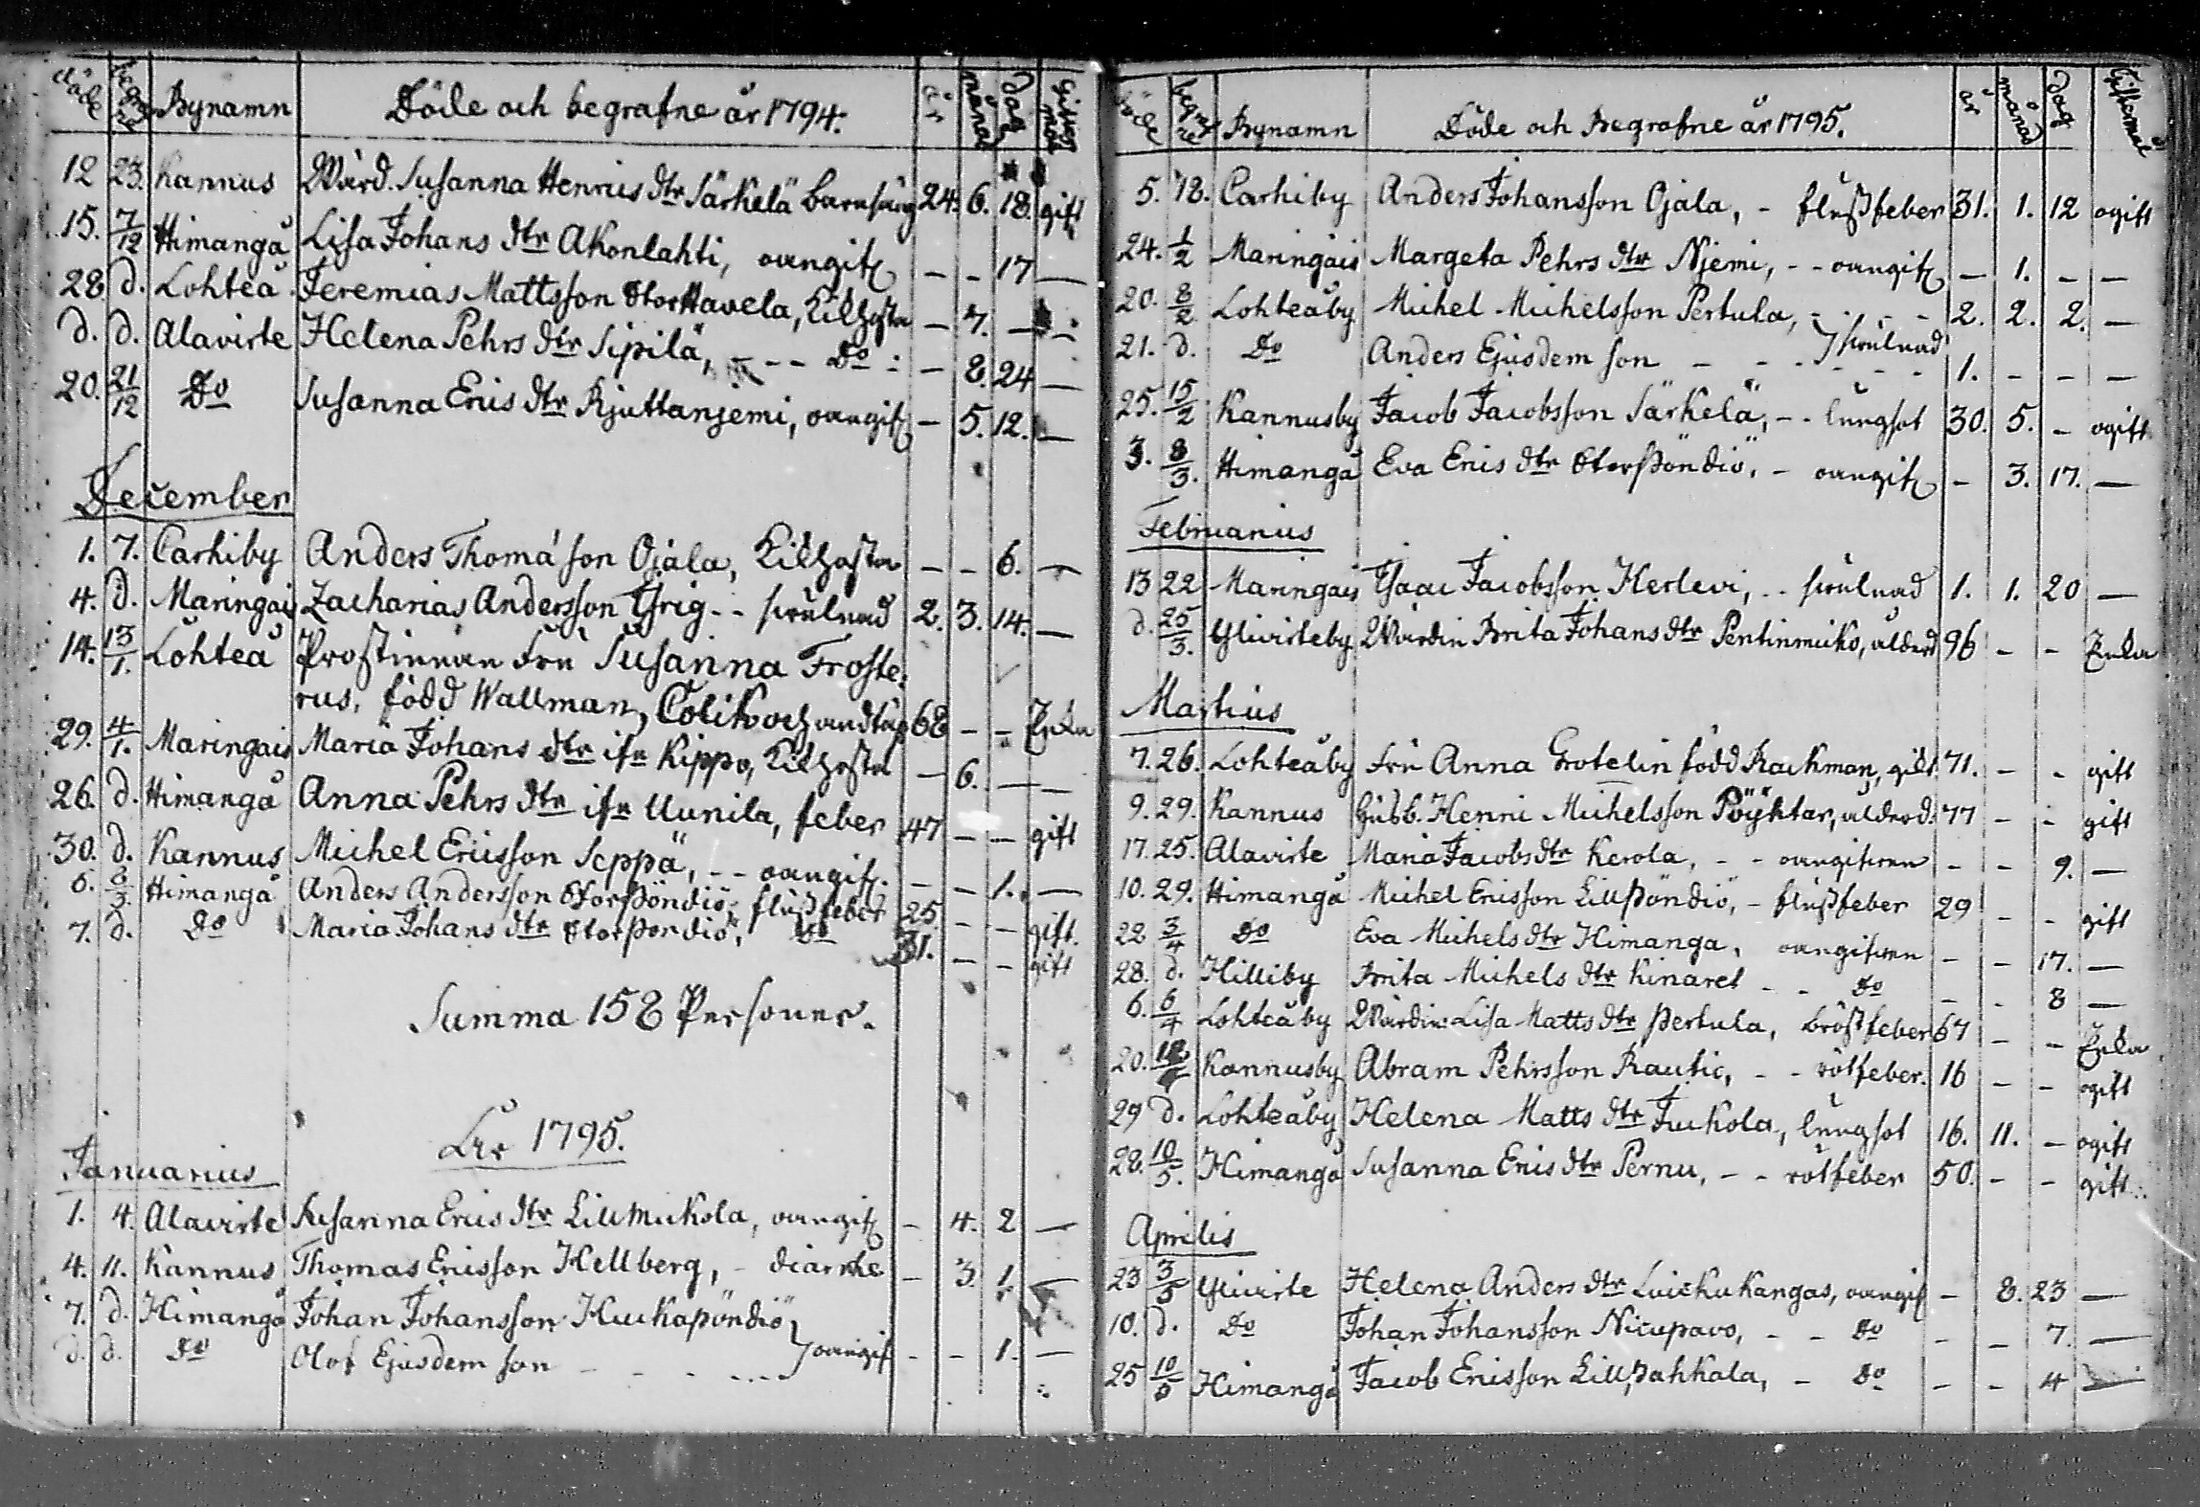 döde begrafne Bynamn Döde och begrafne år 1794. år månad dag Giftermål
12 23. Kannus Wärd. Susanna Henrics dtr Särkelä barnsäng 24. 6. 18. gift
15. 7/12 Himangå Lisa Johans dtr Akonlahti, oangif. – – 17 –
28 d. Lohteå Jeremias Mattsson StorHavela, Kikhosta – 7. – –
d. d. Alavirte Helena Pehrs dtr Sipilä, – – Do – 8. 24 –
20. 21/12 Do Susanna Erics dtr Rjuttanjemi, oangif. – 5. 12. –
December
1. 7. Carhiby Anders Thomæson Ojala, Kikhosta – – 6. –
4. d. Maringais Zacharias Andersson Tjrig – – skrulnad 2. 3. 14. –
14. 13/1. Lohteå Prostinnan Fru Susanna Froste:
rus, född Wallman, Colik och andtäp 68 – – Enka
29. 4/1. Maringais Maria Johans dtr ifr Kippo, Kikhosta – 6. – –
26. d. Himangå Anna Pehrs dtr ifr Uunila, feber 47 – – gift
30. d. Kannus Michel Ericsson Seppä, – – oangif. – – 1. –
6. 8/3. Himangå Anders Andersson Storpöndiö, flussfeber 25 – – gift.
7. d. Do Maria Johans dtr Storpöndiö, Do 31. – – gift
Summa 158 Personer.
År 1795.
Januarius
1. 4. Alavirte Susanna Erics dtr Lillmickola, oangif. – 4. 2 –
4. 11. Kannus Thomas Ericsson Hellberg, – diarrhe – 3. 1. –
7. d. Himangå Johan Johansson Kuckapöndiö
d. d. Do Olof Ejusdem son – – – oangif – – 1. –
döde begrafne Bynamn Döde och Begrafne år 1795. år månad dag Giftermål
5. 18. Carhiby Anders Johansson Ojala, – flussfeber 31. 1. 12 ogift
24. 1/2 Maringais Margeta Pehrs dtr Njemi, – – oangif. – 1. – –
20. 8/2 Lohteåby Michel Michelsson Pertula, – – – 2. 2. 2. –
21. d. Do Anders Ejusdem son – – – skrulnad 1. – – –
25. 15/2 Kannusby Jacob Jacobsson Särkelä, – – lungsot 30. 5. – ogift
3. 8/3. Himangå Eva Erics dtr Storpöndiö, – oangif. – 3. 17. –
Februarius
13 22 Maringais Isaac Jacobsson Herlevi, – – skrulnad 1. 1. 20 –
d. 25/3. Ylivirteby Wärdin Brita Johans dtr Pentinmicko, ålderd 96 – – Enka
Martius
7. 26. Lohteåby Fru Anna Grotelin född Rackman, gikt 71. – – gift
9. 29. Kannus Husb. Henric Michelsson Pöyktar, ålderd. 77 – – gift
17. 25. Alavirte Maria Jacobs dtr Kerola, – – oangifven – – 9. –
10. 29. Himangå Michel Ericsson Lillpöndiö, – flussfeber 29 – – gift
22 3/4 Do Eva Michels dtr Himanga, oangifven – – 17. –
28. d. Hilliby Brita Michels dtr Kinarel – – Do – – 8 –
6. 6/4 Lohteåby Wärdin Lisa Matts dtr Pertula, bröstfeber 67 – – Enka
20. Kannusby Abram Pehrsson Rautio, – – rötfeber. 16 – – ogift
29 d. Lohteåby Helena Matts dtr Juckola, lungsot 16. 11. – ogift
28. 10/5. Himangå Susanna Erics dtr Pernu, – – rötfeber 50. – – gift
Aprilis
23 3/5 Ylivirte Helena Anders dtr Luickukangas, oangif – 8. 23 –
10. d. Do Johan Johansson Nicupavo, – – Do – – 7. –
25 10/5 Himangå Jacob Ericsson Lillpahkala, – Do – – 4 –